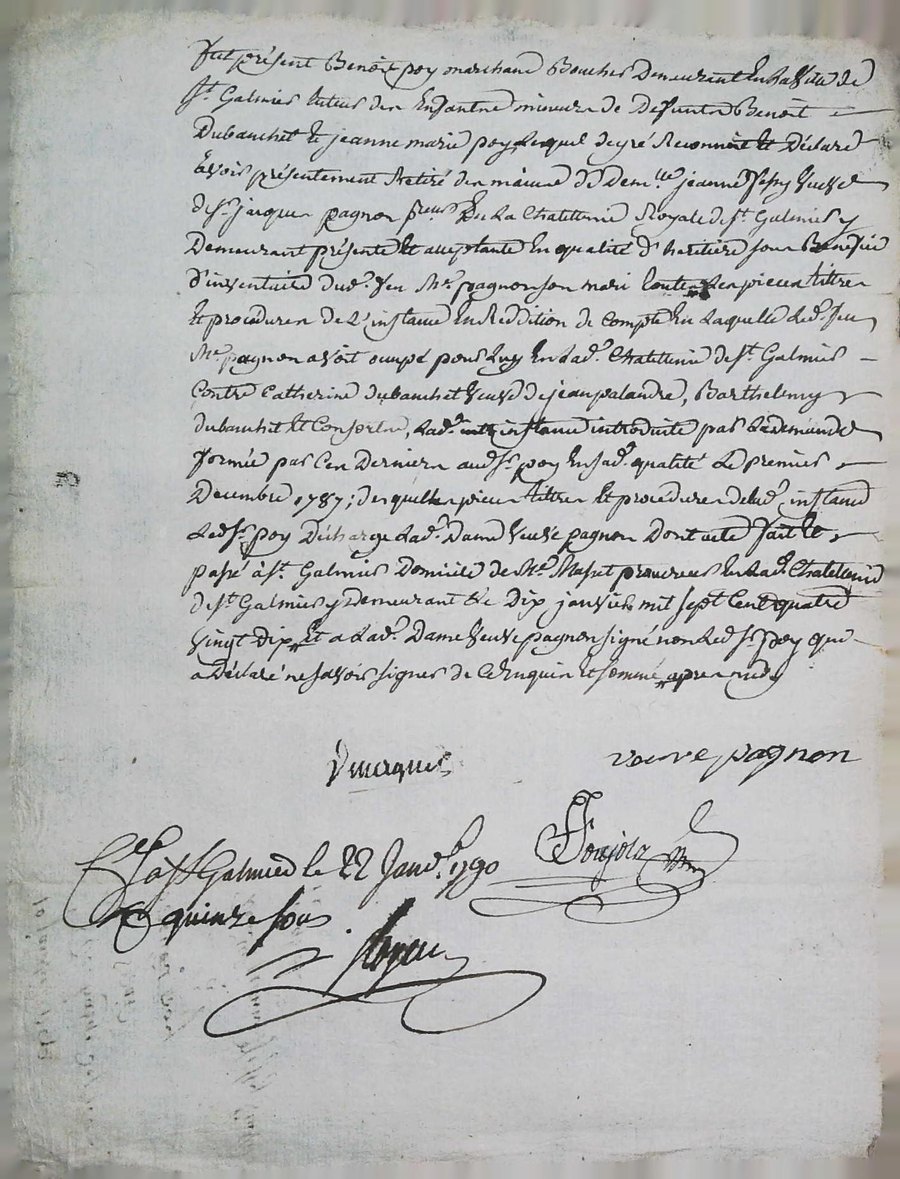 fut présent Benoit poy marchand Boucher Demeurant En la ville de
St. Galmier tuteur des Enfants mineurs de Defunts Benoit
Dubanchet et jeanne marie poy, Lequel de gré Reconnoit et Déclare
avoir présentement Retiré des mains de Dem.lle jeanne veuve
de Sr. jacques pagnon De La Chatellenie Royale de St. Galmier y
Demeurant présente et acceptante En qualité d'héritière sous Bénéfice
d'inventaire dud. feu Me. pagnon son mari toutes Les pieces titres
et procédures de L'instance En Reddition de Compte En Laquelle Led. feu
Me. pagnon avoit occupé pour Luy En Lad. Chatellenie de St. Galmier
Contre Catherine dubanchet veuve de jean palandre, Barthelemy
dubanchet et Consorts, Lad. instance introduite par La demande
formée par Ces Derniers aud. Sr. poy En sad. qualité Le premier
Decembre 1787; desquelles pieces titres et procédures de lad. instance
Led. Sr. poy Décharge Lad. Dame veuve pagnon Dont acte fait et
passé à St. Galmier Domicile de Me. Musset procureur En Lad. Chatellenie
de St. Galmier y Demeurant Le Dix janvier mil sept Cent quatre
vingt dix Et a Lad. Dame veuve pagnon signé non Led. Sr. poy qui
a Déclaré ne savoir signer de Ce Enquis Et sommé
veuve pagnon
Clé à St Galmier le 22 Janv. 1790
quinze sous